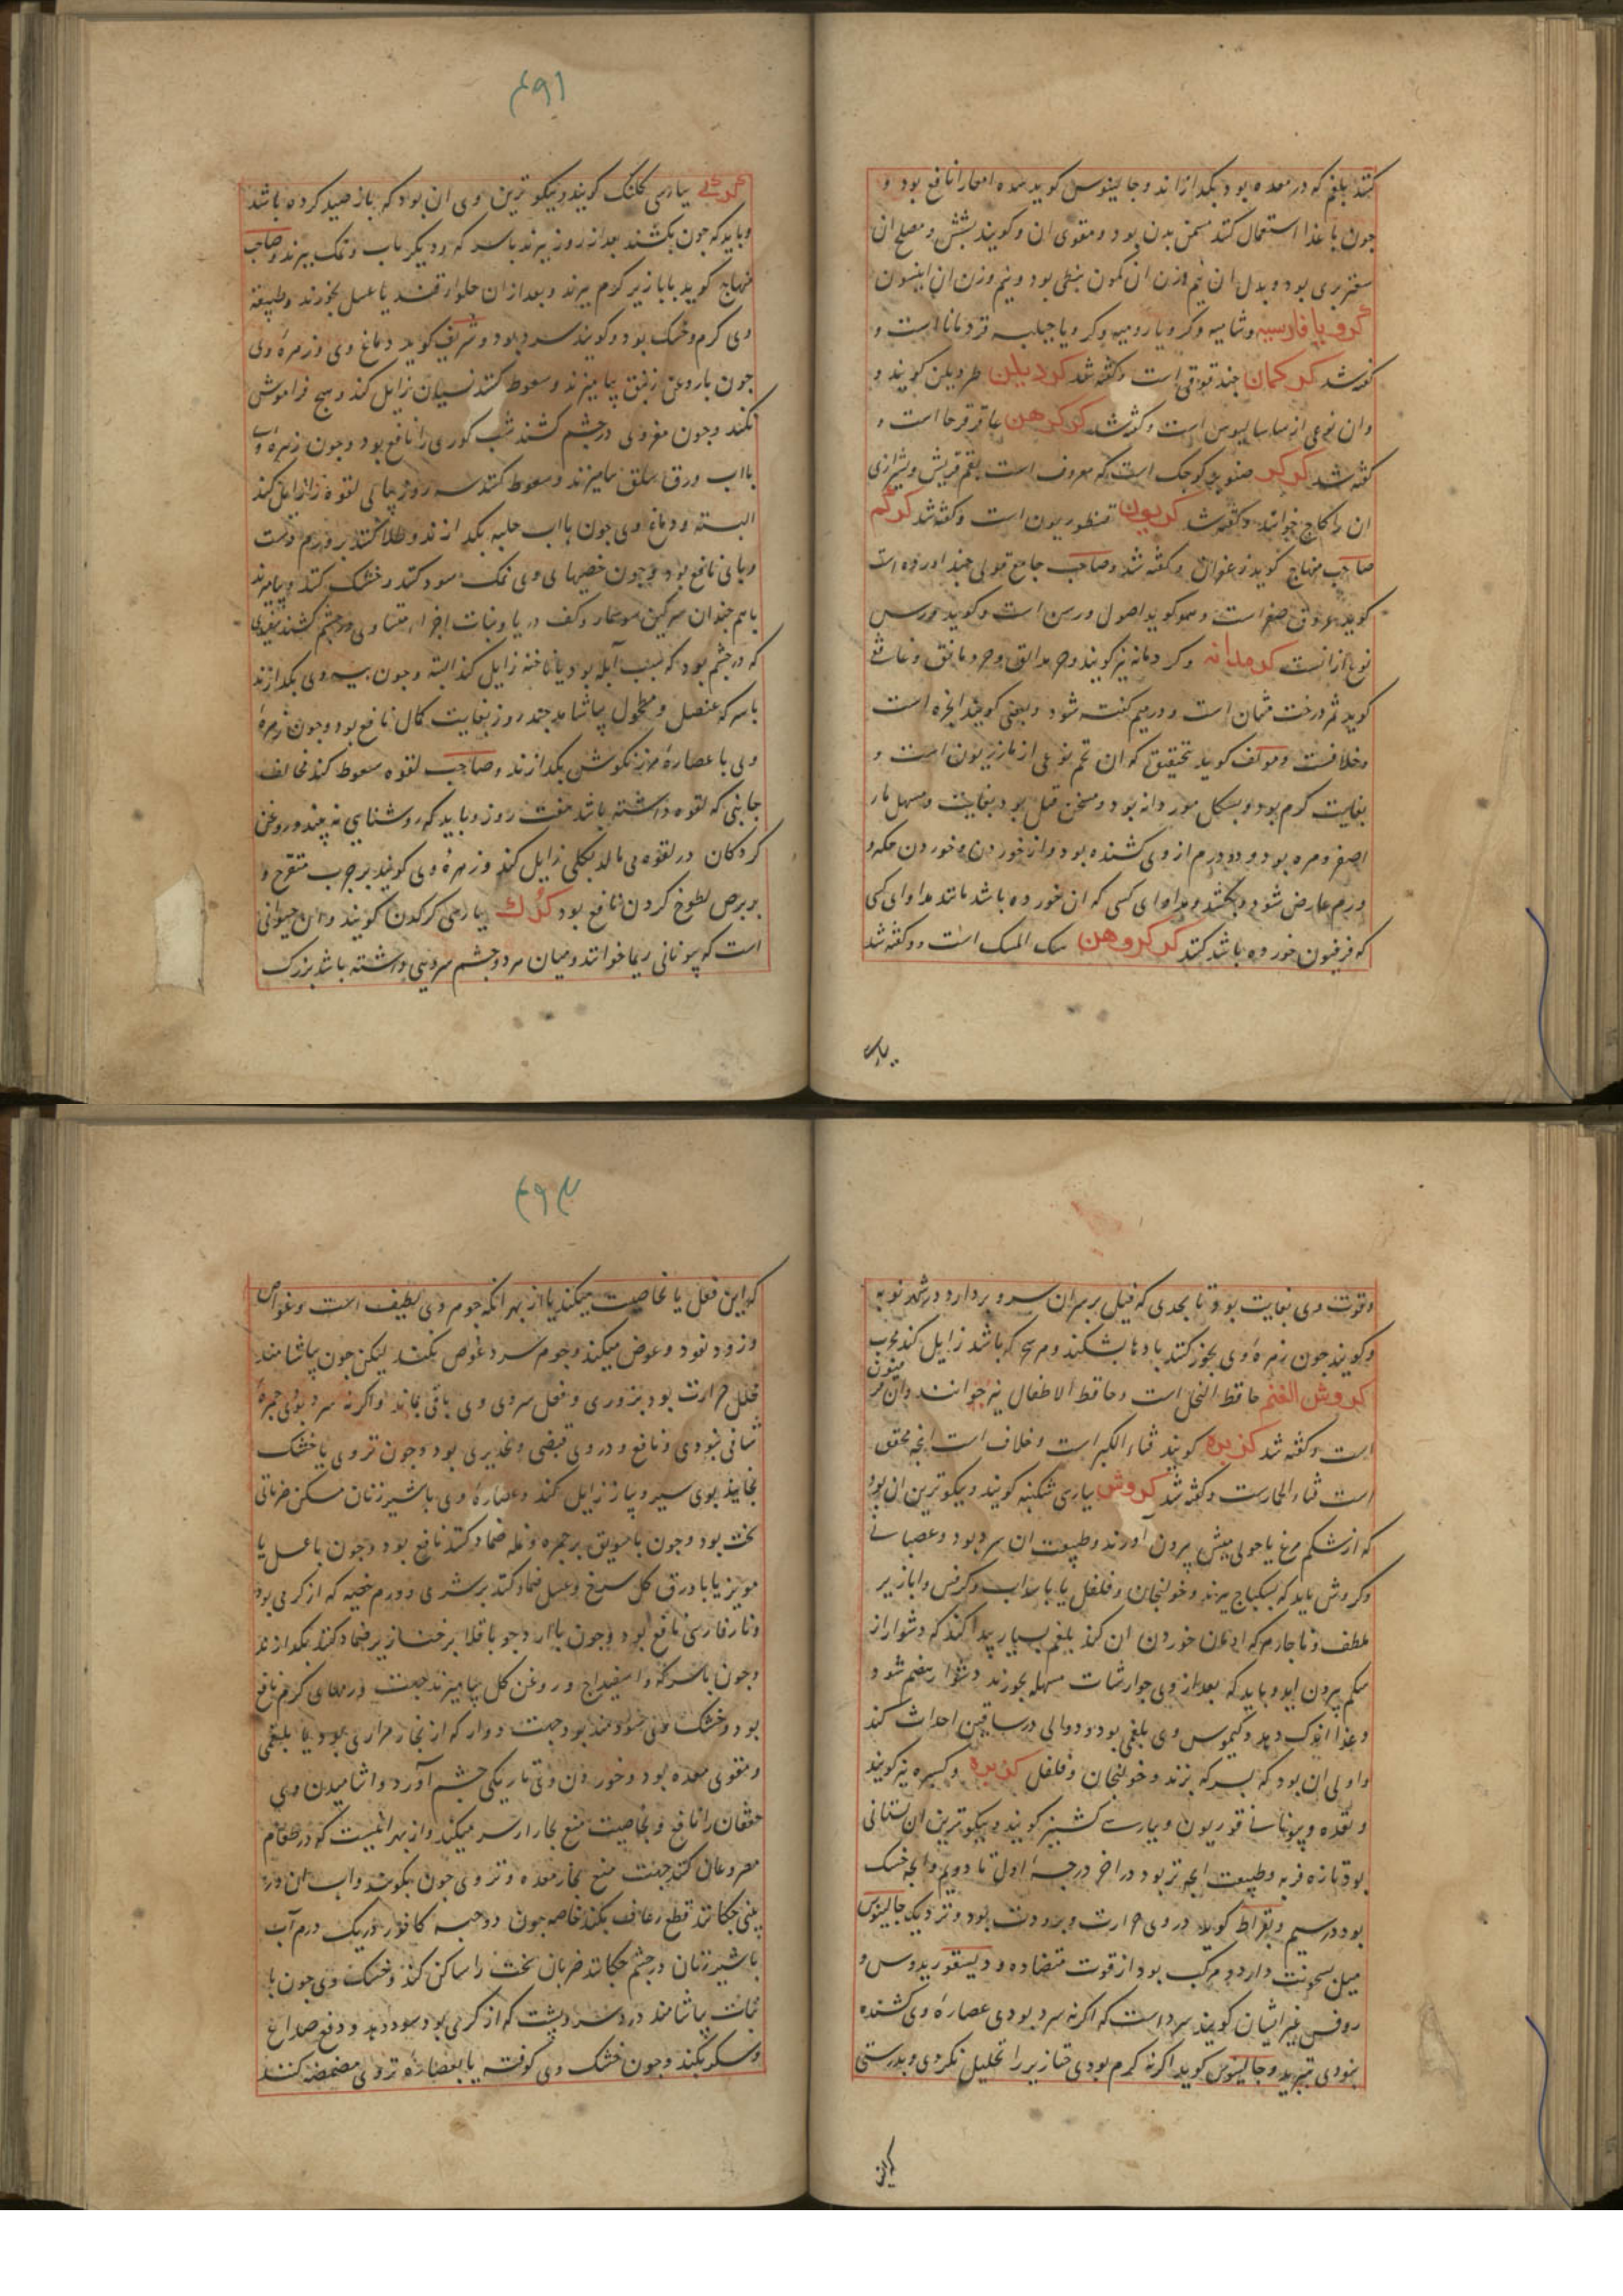 کنند بلغم که در معده بود بگدازاند و جالینوس گوید معده امعا را نافع بود و
چون با غذا استعمال کنند مسخن بدن بود و مقوی ان و گویند بشش و مصلح ان
سعتر بری بود و بدل ان نیم وزن ان کمون نبطی بود و نیم وزن ان انیسون
کرویا فارسیه و شامیه و کرویا رومیه و کرویا جبلیه قردمانا است و
گفته شد کرکمان جندقوقی است و گفته شد کردیلن طردیلن گویند و
وان نوعی از ساسالیوس است و گفته شد کرکرهن عاقرقرحا است و
گفته شد کرکر صنوبر کوچک است که معروف است بقم قریش و شیرازی
ان را کاج خوانند و گفته شد کریون قنطوریون است و گفته شد کرکم
صاحب منهاج گوید زعفران و گفته شد و صاحب جامع قولی چند اورده است
گوید عروق صفر است و هموگوید اصول ورس است و گوید ورس
نوع ازانست کرمدانه و کردمانه نیز گویند و غافقی
گوید ثمر درخت مثنان است و در میم گفته شود و بعضی گویند انجره است
و خلافست و مولف گوید تحقیق که ان تخم نوعی از مازریون است و
بغایت گرم بود و بشکل مورد دانه بود و مسخن قبل بود بغایت و مسهل مار
اصفر و مره بود و دو درم از وی کشنده بود و از خوردن و خوردن حکه و
ورم عارض شود و بکشد و مداوای کسی که ان خورده باشد مانند مداوای کسی
که فرفیون خورده باشد کنند کرکروهن سک المسک است و گفته شد
۴۹۱
کرکی بپارسی کلنگ گویند و نیکوترین وی ان بود که باز صید کرده باشد
و باید که چون بکشند بعد از روز بپزند با سرکه و دیگر باب و نمک بپزند و صاحب
منهاج گوید با بازیر گرم بپزند و بعد از ان حلوا و قند یا عسل بخورند و طبیعة
وی گرم و خشک بود و گویند سرد بود و شریف گوید دماغ وی و زهرهٔ وی
چون با روغن زنبق بیامیزند و سعوط کنند نسیان زایل کند و هیچ فراموش
نکند و چون مغز وی در چشم کشند شب کوری را نافع بود و چون زهرهٔ وی
با اب ورق سلق بیامیزند و سعوط کنند سه روز پیاپی لقوه را زایل کند
البته و دماغ وی چون با اب حلبه بگدازند و طلا کنند بر ورم دست
و پای نافع بود و چون خصیهای وی نمک سود کنند و خشک کنند و بیامیزند
با هم چندان سرگین سوسمار و کف دریا و نبات اجزا متساوی و در چشم کشند سفیدی
که در چشم بود که بسبب آبله بود یا ناخنه زایل کند البته و چون پیه وی بگدازند
با سرکه عنصل و مطحول بیاشامد چند روز بغایت کمال نافع بود و چون زهرهٔ
وی با عصارهٔ مرزنگوش بگدازند و صاحب لقوه سعوط کند مخالف
جانبی که لقوه داشته باشد هفت روز و باید که روشنایی نه بیند و روغن
گردکان در لقوه می مالد بکلی زایل کند و زهرهٔ وی گویند بر جرب متقرح و
بر برص لطوخ کردن نافع بود کرک بپارسی کرگدن گویند و ان حیوانی
است که یونانی ریما خوانند و میان هر دو چشم سرونی داشته باشد بزرگ
وقوت وی بغایت بود تا بحدی که فیل بر سر ان سرو بردارد در شهر نوبه
و گویند چون زهرهٔ وی بخور کنند بادها بشکند و هر سحر که باشد زایل کند مجرب
کروش الغنم حافظ النحل است و حافظ الاطفال نیز خوانند وان
است و گفته شد کزبره گویند قثاء الکبر است و خلاف است انچه محقق
است قثاء الحمارست و گفته شد کروش بپارسی شکنبه گویند و نیکوترین ان بود
که از شکم مرغ یا حولی میش بیرون آورند و طبیعت ان سرد بود و عصبانی
و کروش باید که بسکباج بپزند و خولنجان و فلفل یا با سداب و کرفس و ابازیر
ملطف و ناچارم که ادمان خوردن ان کند بلغم بسیار پیدا کند که دشوار از
شکم بیرون اید و باید که بعد از وی جوارشات مسهله بخورند و دشوار هضم شود
و غذا اندک دهد و کیموس وی بلغمی بود و دوالی در ساقین احداث کند
و اولی ان بود که بسرکه پزند و خولنجان و فلفل کزبره و کسبره نیز گویند
و تقده و یونانی قوریون و بپارسی کشنیز گویند و نیکوترین ان بستانی
بود تازه فربه و طبیعت انچه تر بود در اخر درجهٔ اول تا دویم و انچه خشک
بود در سیم و بقراط گوید در وی حرارت و برودت بود و نزدیک جالینوس
میل بسخونت دارد و مرکب بود از قوت متضاده و دیسقوریدوس و
روفس غیر ایشان گویند سرد است که اگر نه سرد بودی عصارهٔ وی کشنده
نبودی بتبرید و جالینوس گوید اگر نه گرم بودی خنازیر را تحلیل نکردی و بدرستی
۴۹۲
که این فعل یا بخاصیت میکند یا از بهر انکه جوهر وی لطیف است و غواص
و زود نفوذ و غوص میکند و جوهر سرد غوص نکند لیکن چون بیاشامند
محلل حرارت بود بزودی و فعل سردی وی باقی بماند و اگر نه سرد بودی جمرهٔ
شافی نبودی و نافع و در وی قبضی و تخدیری بود و چون تر وی یا خشک
بخایند بوی سیر و پیاز زایل کند و عصارهٔ وی با شیر زنان مسکن ضربانی
سخت بود و چون با سویق بر جمره و نمله ضماد کنند نافع بود و چون با عسل یا
مویز یا با ورق گل سرخ و عسل ضماد کنند بر شری و ورم خصیه که از گرمی بود
و نار فارسی نافع بود و چون با ارد جو یا باقلا بر خنازیر ضماد کنند بگدازند
و چون با سرکه و اسفیداج و روغن گل بیامیزند جهت ورمهای گرم نافع
بود و خشک وی سودمند بود جهت دوار که از بخار مراری بود یا بلغمی
و مقوی معده بود و خوردن وی تاریکی چشم آورد و اشامیدن وی
خفقان را نافع و بخاصیت منع بخار از سر میکند و از بهر انیست که در طعام
مصروعان کنند جهت منع بخار معده و تر وی چون بکوبند و اب ان در
بینی چکانند قطع رعاف بکند خاصه چون دو حبه کافور در یک درم آب
با شیر زنان در چشم چکانند ضربان سخت را ساکن کند و خشک وی چون با
نبات بیاشامند درد سر و پشت که از گرمی بود سود دهد و دفع صداع
و سکر بکند و چون خشک وی کوفته یا بعصارهٔ تر وی مضمضه کنند